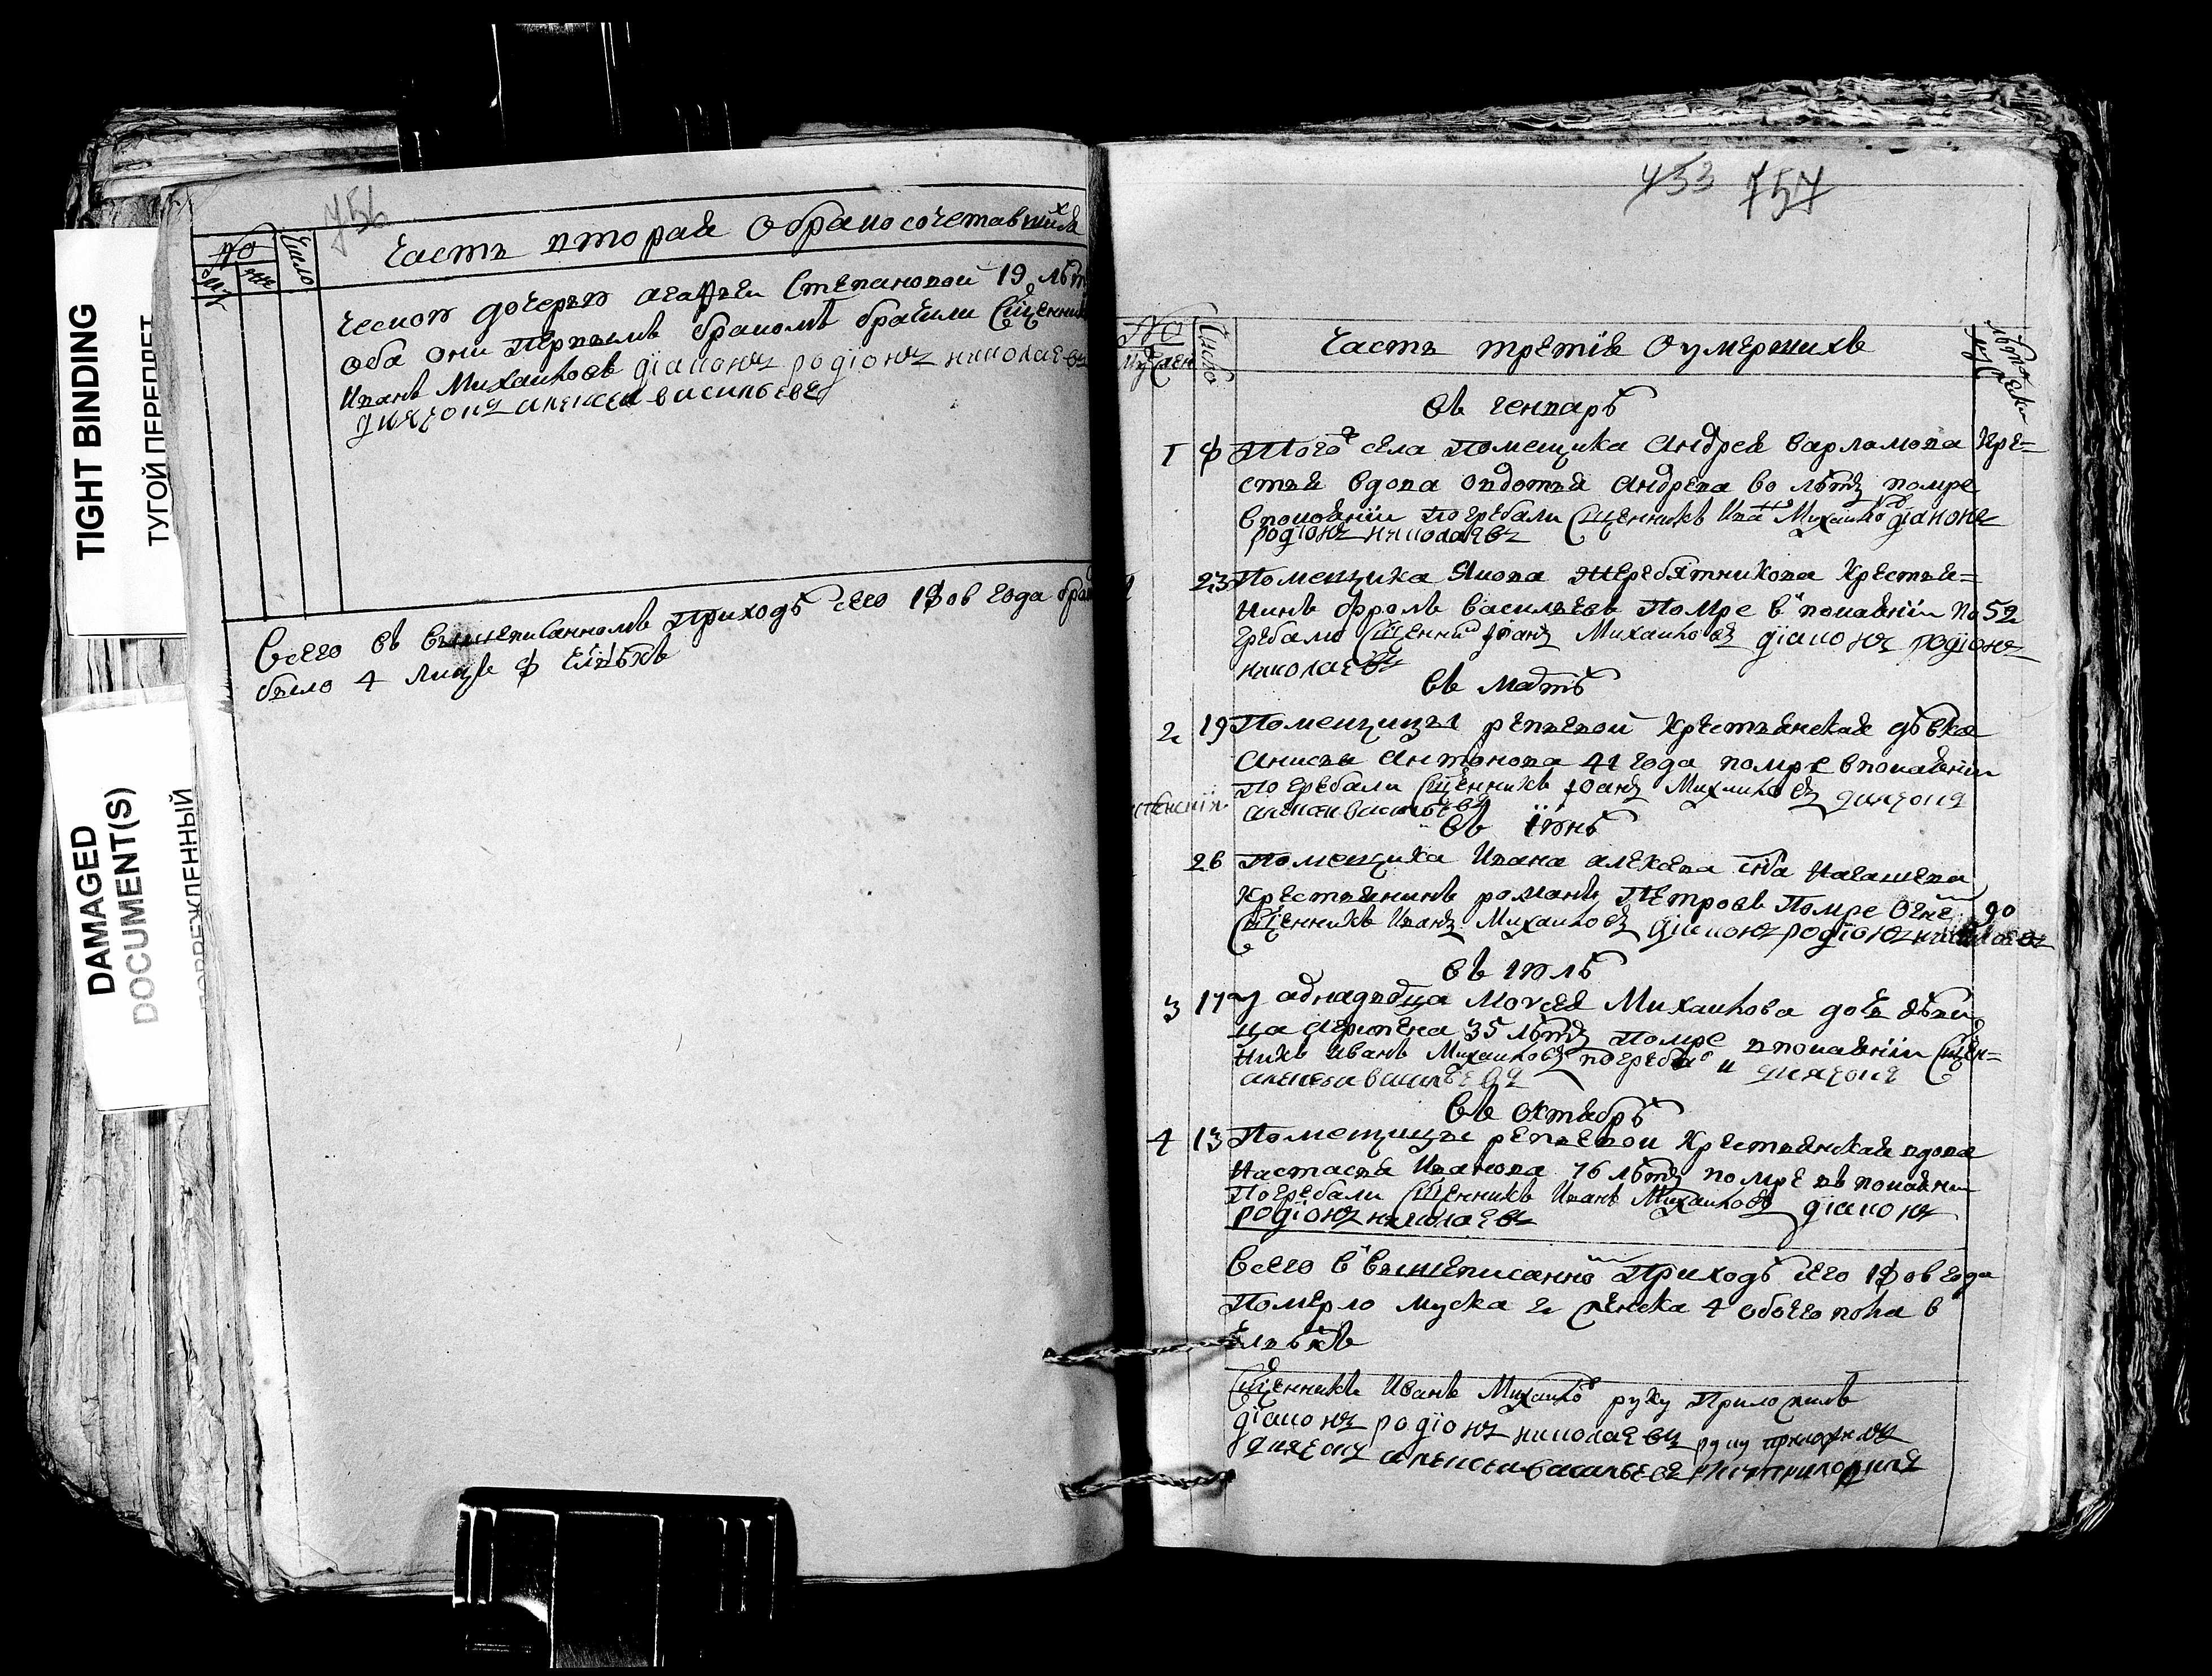 TIGHT BINDING
ТУГОЙ ПЕРЕПЛЕТ
DAMAGED
DOCUMENT(S)
ПОВРЕЖДЕННЫЙ
756
No
Число
Часть вторая о бракосочетавшихся
дочерью Агафьей Степановой 19 лѣтъ
оба они первымъ бракомъ брачили Сщенникъ
Иванъ Михаиловъ діаконъ родіонъ николаевъ
дьячокъ алексей васильевъ
Всего въ вышеписанномъ приходѣ сего года
было 4
453 757
No
Число
Часть третія о умершихъ
въ генварѣ
1 Того села помещика Андрея варламова кре=
стья вдова овдотья Андреева лѣтъ помре
в покаяніи погребали Сщенникъ Ива Михаило діаконъ
родіонъ николаевъ
23 Помещика Якова Жеребятникова крестья=
нинъ фролъ васильевъ помре в покаяніи по 52
гребали Сщенни Іоанъ Михаиловъ діаконъ родіонъ
николаевъ
въ
2 19 Помещицы репьевой крестьянская дѣвка
Анисья Антонова 41 года помре в покаяніи
погребали Сщенникъ Іоанъ Михаиловъ дьячокъ
алексеи васильевъ
въ іюнѣ
26 Помещика Ивана алексева сна
крестьянинъ романъ Петровъ помре 90
Сщенникъ Иванъ Михаиловъ діаконъ родіонъ николаевъ
въ іюлѣ
3 17 У аднадвдца Моисея Михаилова дочь дѣви
ца 35 лѣтъ помре в покаяніи Сщен=
никъ Иванъ Михаиловъ погреба и дьячокъ
алексеи васильевъ
въ октябрѣ
4 13 Помещицы репьевой крестьянская вдова
Настасья Иванова 76 лѣтъ помре въ покаянии
Погребали Сщенникъ Иванъ Михаиловъ діаконъ
родіонъ николаевъ
Всего в вышеписанно приходѣ сего года
померло муска 2 женска 4 обоего пола
Сщенникъ Иванъ Михаило руку приложилъ
діаконъ родіонъ николаевъ руку приложилъ
дьячокъ алексеи васильевъ приложилъ